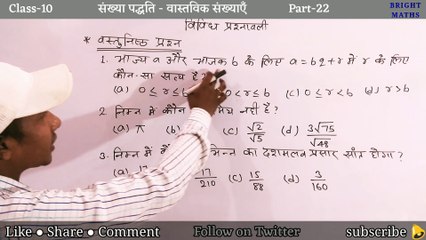 Class-10 संख्या पद्धति - वास्तविक संख्याएँ Part-22 BRIGHT MATHS
विविध प्रश्नावली
* वस्तुनिष्ठ प्रश्न
1. भाज्य a और भाजक b के लिए a = bq + r में r के लिए
कौन-सा सत्य है?
(a) 0 ≤ r ≤ b 0 < r ≤ b (c) 0 ≤ r < b (d) r > b
2. निम्न में कौन नहीं है?
(a) π (b) (c) √2/√5 (d) 3√75/√48
3. निम्न में का दशमलव प्रसार सांत होगा?
(a) 17/210 (c) 15/88 (d) 3/160
Like ● Share ● Comment Follow on Twitter subscribe